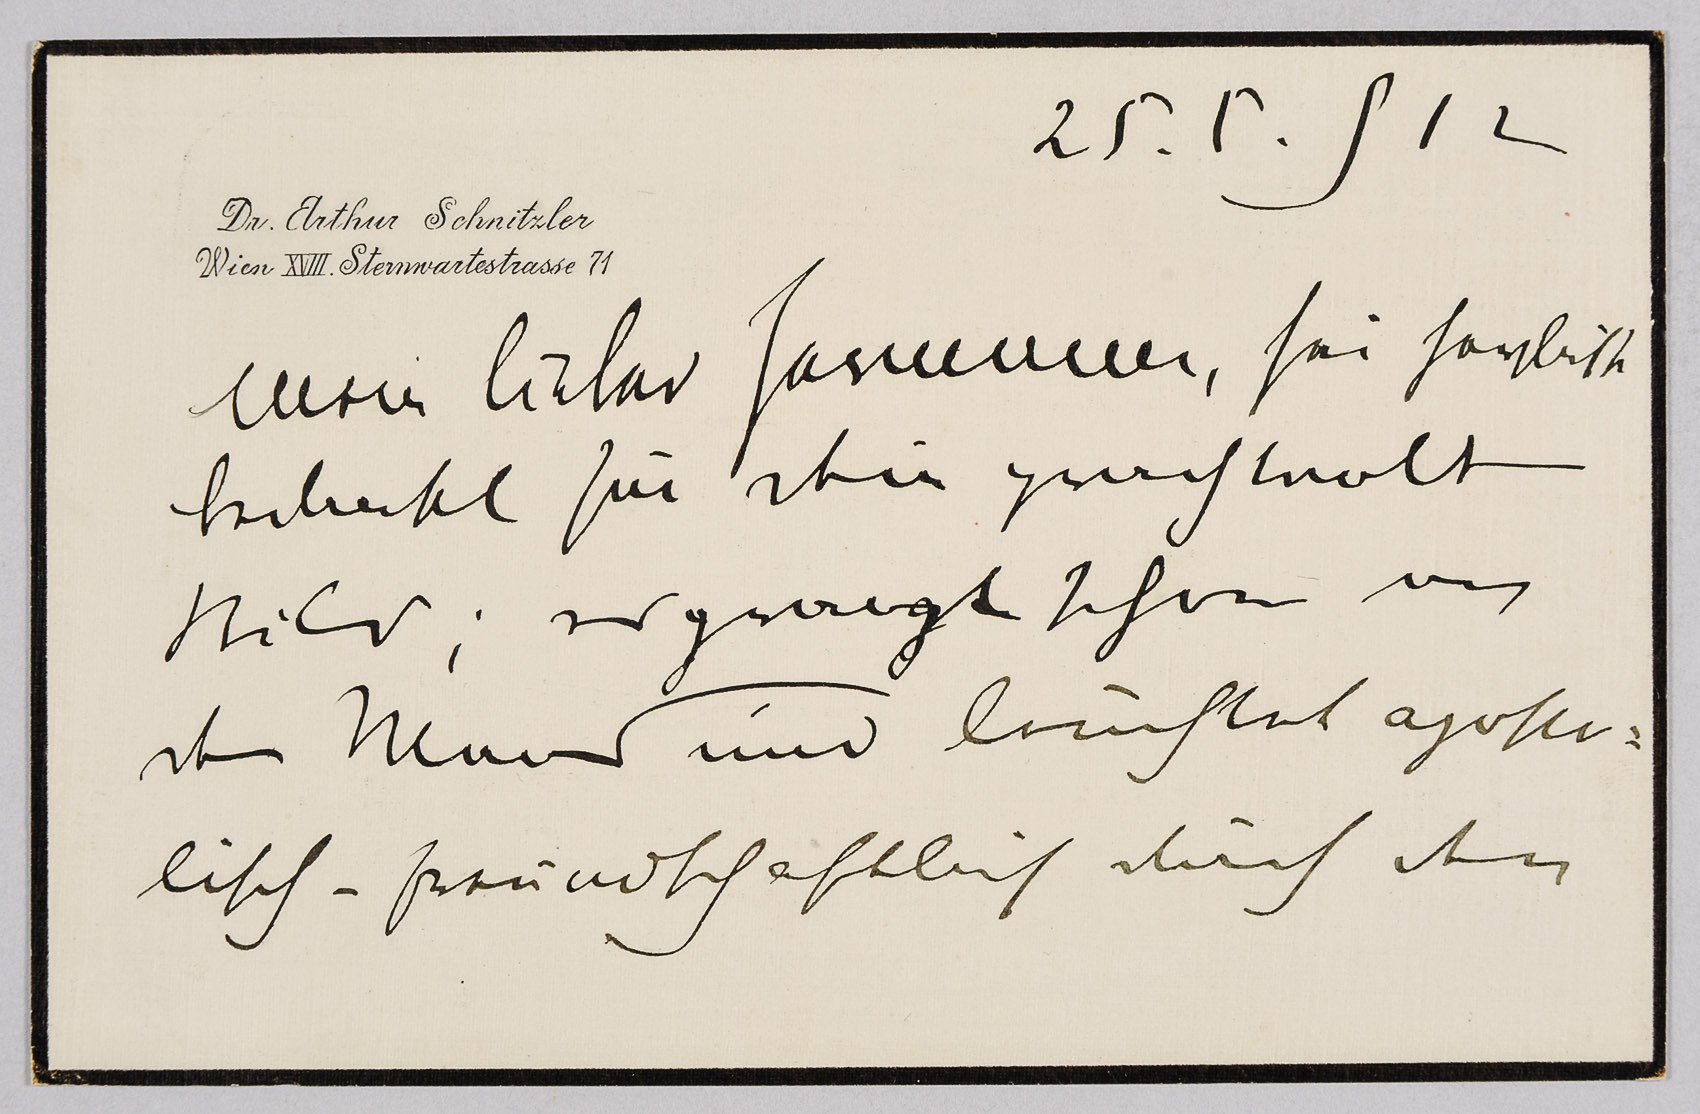 25. 5. 912
Dr. Arthur Schnitzler
Wien XVIII. Sternwartestrasse 71
mein lieber Hermann, sei herzlichst
bedankt für dein prachtvolles
Bild; es prangt schon an
der Wand und leuchtet aposto=
lisch-freundschaftlich durch den